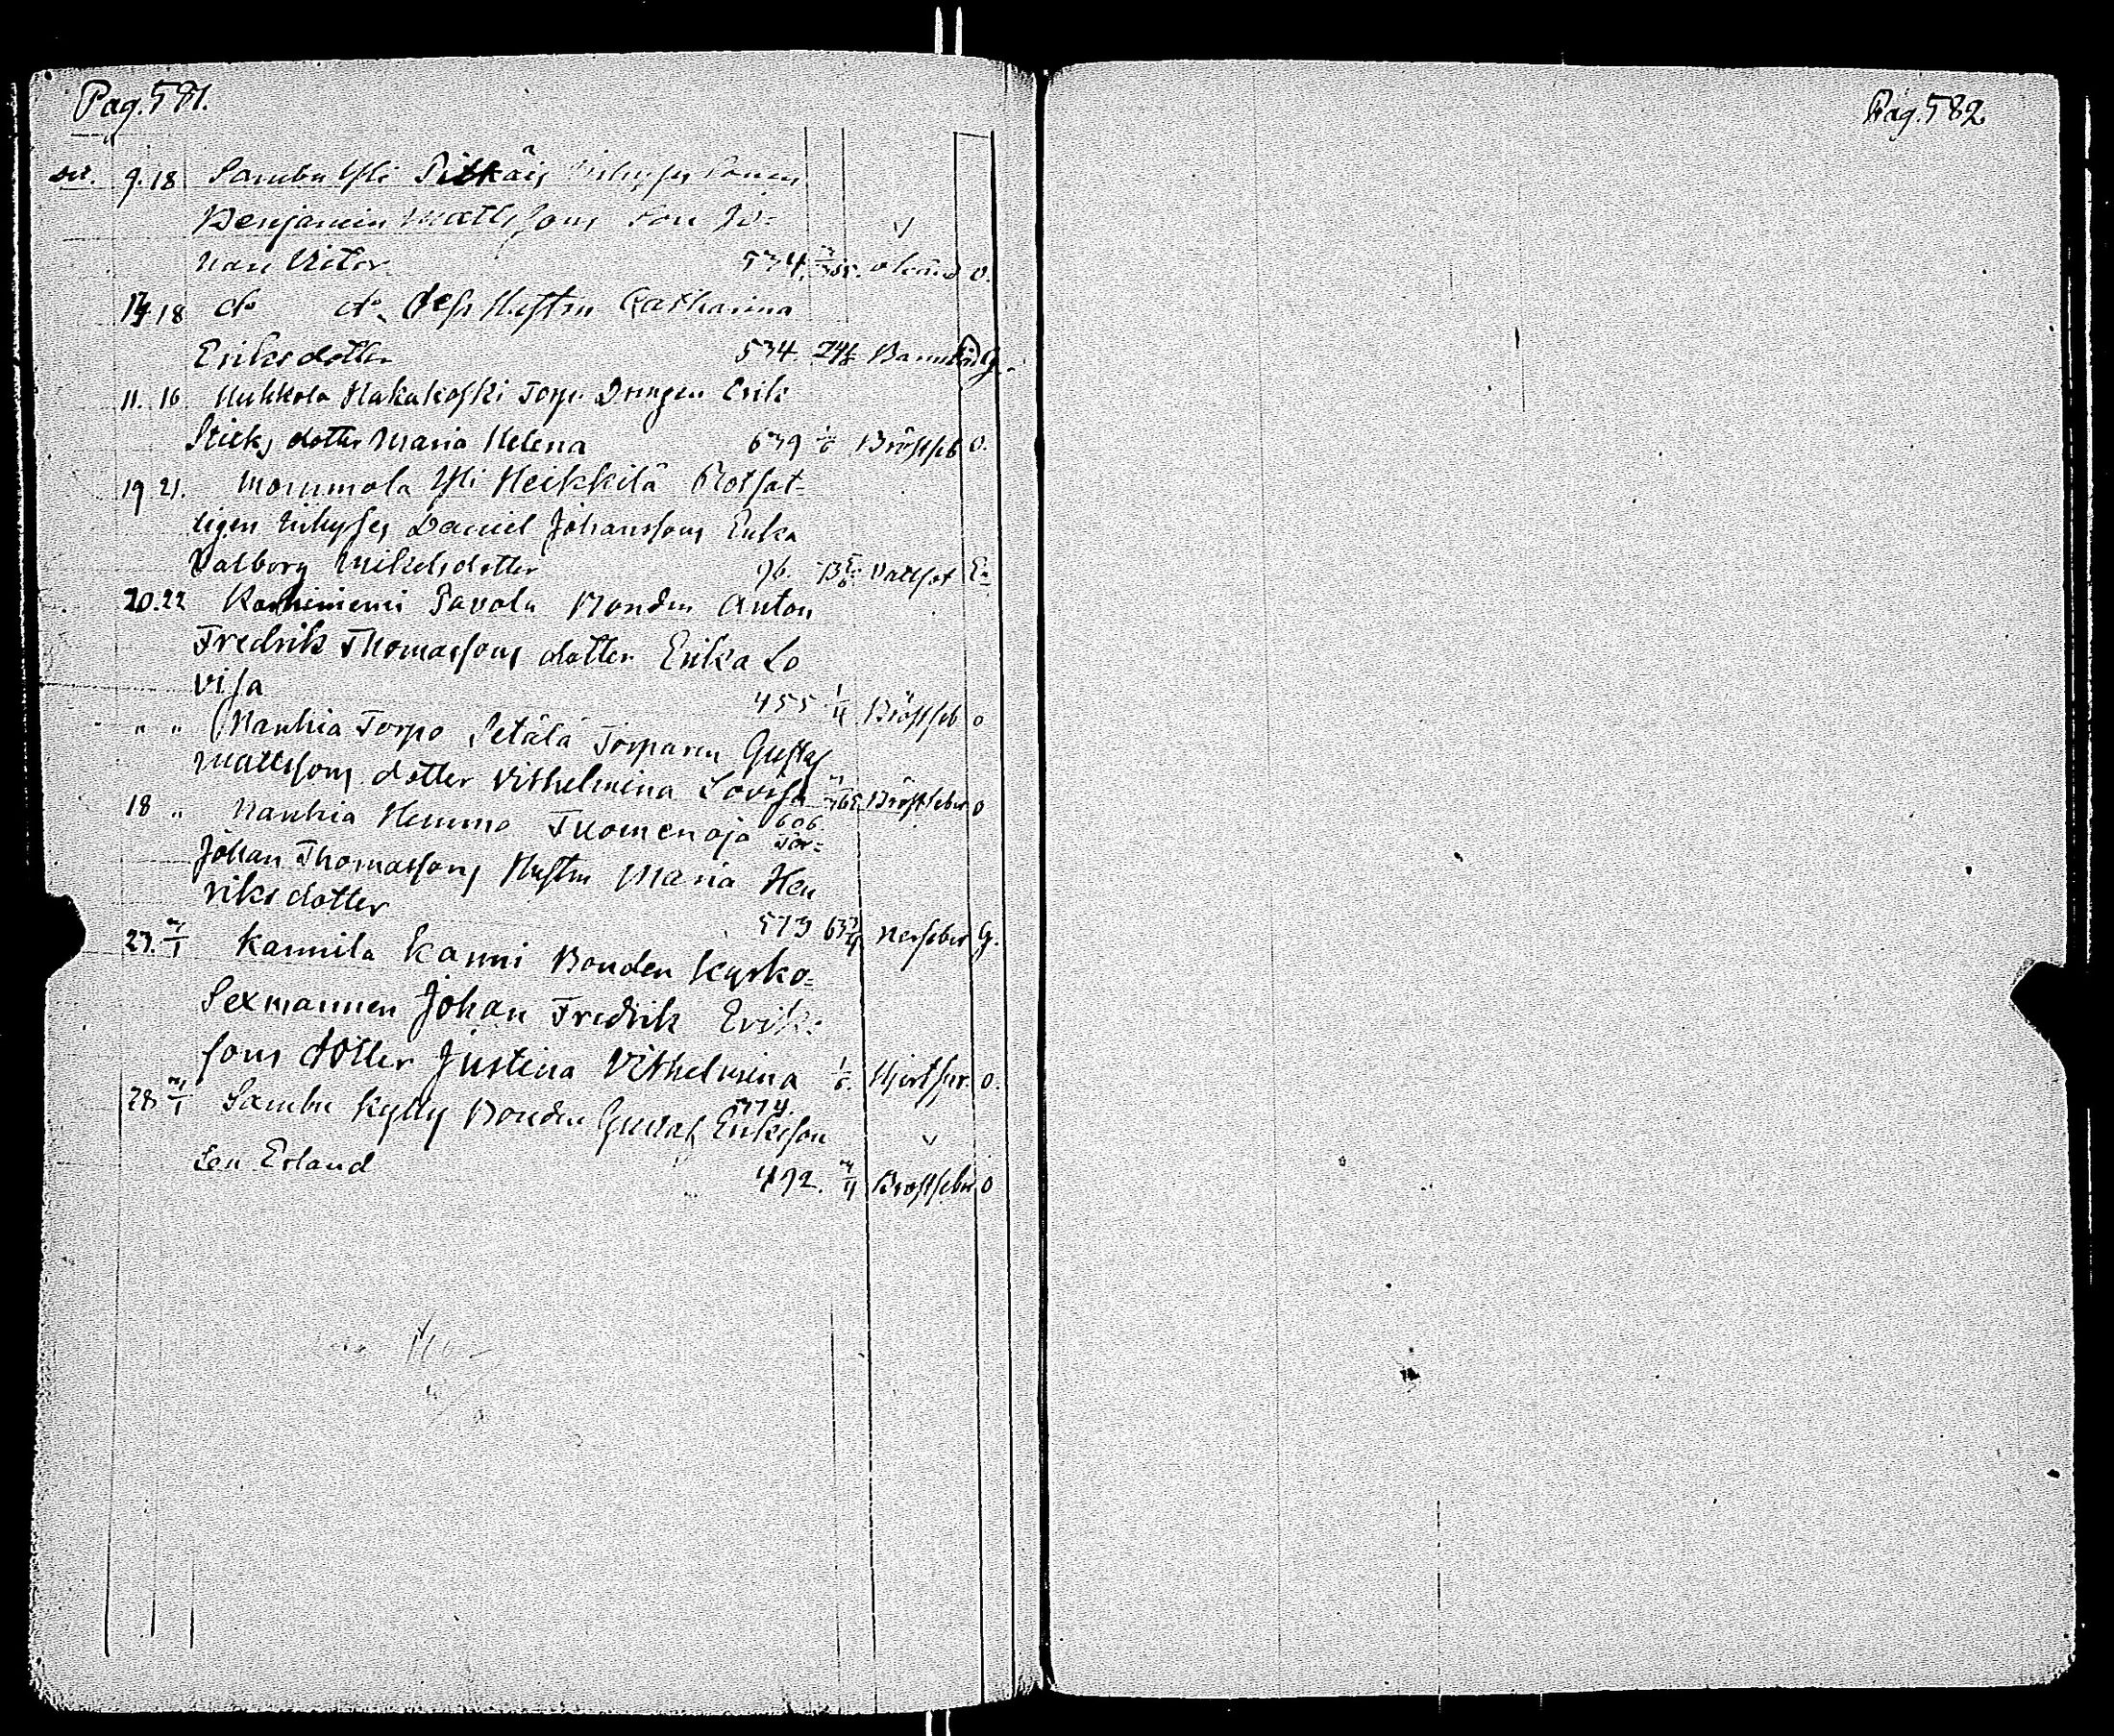 Pag. 581.
Pag. 582
Dec. 9. 18 Sambu Yli Pitkäis Inhyses Sonen
Benjamin Mattssons Son Jo=
han Victor 534. okänd O.
14 18 do do dess Hustru Catharina
Eriksdotter 534. Barnsäng G.
11. 16 Hukkola Hakakoski Torp. Drengen Erik
Sticks dotter Maria Helena 639 1/6 Bröstfeb O.
19 21. Mommola Yli Heikkilä Rotfat=
tigen Inhyses Daniel Johanssons Enka
Valborg Mikelsdotter 96. Vattsot E.
20. 22 Karhiniemi Pavola Bonden Anton
Fredrik Thomassons dotter Erika Lo
visa 455 1/4 Bröstfeb o
" " Nanhia Torpo Setälä Torparen Gustaf
Mattssons dotter Vilhelmina Lovisa Bröstfeber o
606.
18 " Nanhia Hemmo Tuomenoja Tor=
Johan Thomassons Hustru Maria Hen
riksdotter 573 63 Nerfeber G.
23. 3/1 Kannila Kanni Bonden Kyrko=
Sexmannen Johan Fredrik Erik=
sons dotter Justina Vilhelmina 1/6. O.
28 3/1 Sambu Kylly Bonden Gustaf Eriksson
Son Erland 492. 3/4 Bröstfeber O